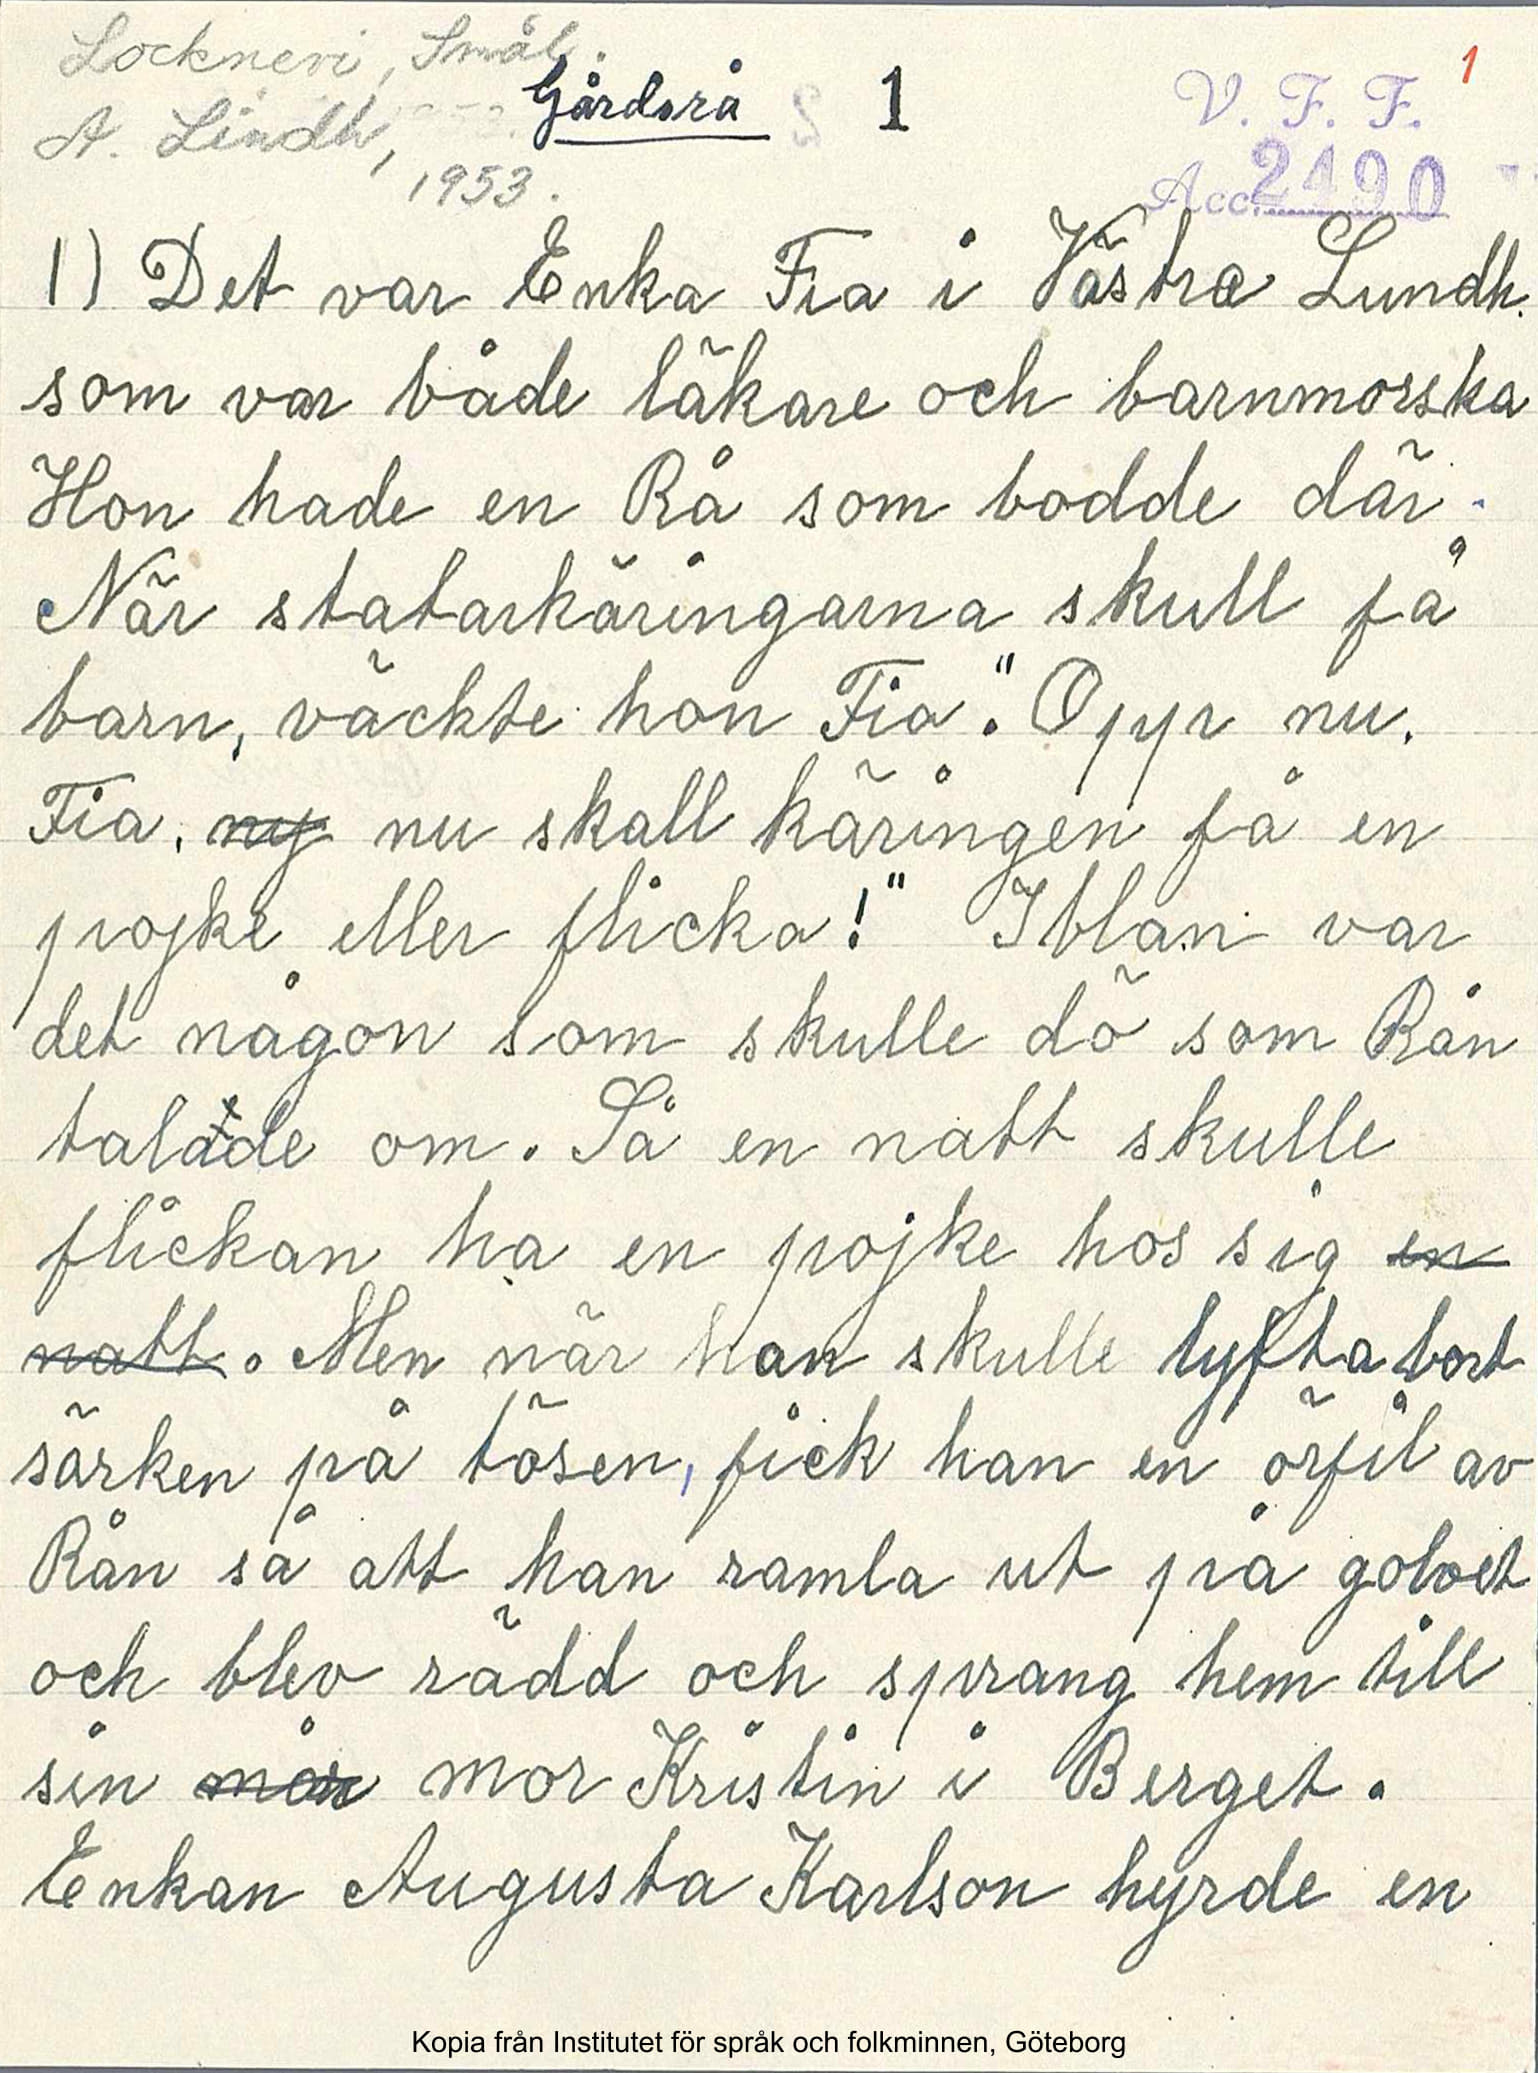 Lockneri, Smål.
Gårdsrå 1
1
V. F. F.
A. Lindh,
1953.
Acc. 2490
1) Det var Enka Fia i Västra Lundh.
som var både läkare och barnmorska
Hon hade en Rå som bodde där.
När statarkäringarna skull få
barn, väckte hon Fia. "Opp nu.
Fia, ny nu skall käringen få en
pojke eller flicka!" Iblan var
det någon som skulle dö som Rån
talade om. Så en natt skulle
flickan ha en pojke hos sig en
natt. Men när han skulle lyfta bort
särken på tösen, fick han en örfil av
Rån så att han ramla ut på golvet
och blev rädd och sprang hem till
sin mor Kristin i Berget.
Enkan Augusta Karlson hyrde en
Kopia från Institutet för språk och folkminnen, Göteborg